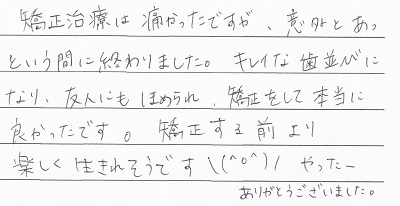 矯正治療は痛かったですが、意外とあっ
という間に終わりました。キレイな歯並びに
なり、友人にもほめられ、矯正をして本当に
良かったです。矯正する前より
楽しく生きれそうです \(^o^)/ やったー
ありがとうございました。